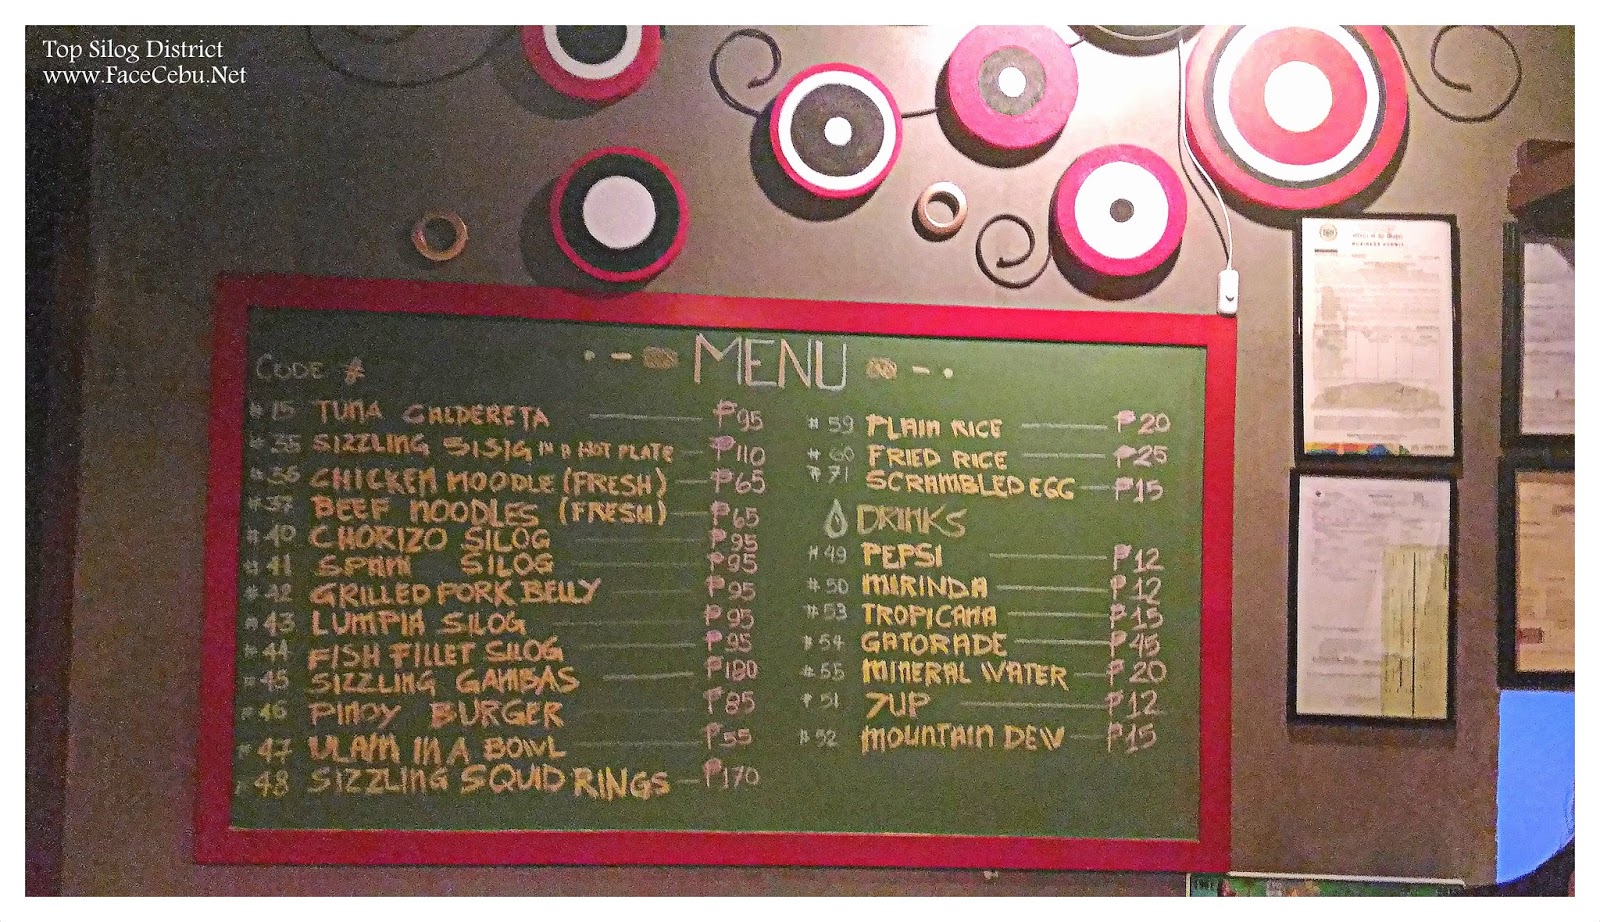 Top Silog District
www.FaceCebu.Net
MENU
CODE #
#15 TUNA CALDERETA ₱95
#35 SIZZLING SISIG IN A HOT PLATE ₱110
#36 CHICKEN NOODLE (FRESH) ₱65
#37 BEEF NOODLES (FRESH) ₱65
#40 CHORIZO SILOG ₱95
#41 SPAM SILOG ₱95
#42 GRILLED PORK BELLY ₱95
#43 LUMPIA SILOG ₱95
#44 FISH FILLET SILOG ₱95
#45 SIZZLING GAMBAS ₱180
#46 PINOY BURGER ₱85
#47 ULAM IN A BOWL ₱55
#48 SIZZLING SQUID RINGS ₱170
#59 PLAIN RICE ₱20
#60 FRIED RICE ₱25
#71 SCRAMBLED EGG ₱15
DRINKS
#49 PEPSI ₱12
#50 MIRINDA ₱12
#53 TROPICANA ₱15
#54 GATORADE ₱45
#55 MINERAL WATER ₱20
#51 7UP ₱12
#52 MOUNTAIN DEW ₱15
BUSINESS PERMIT